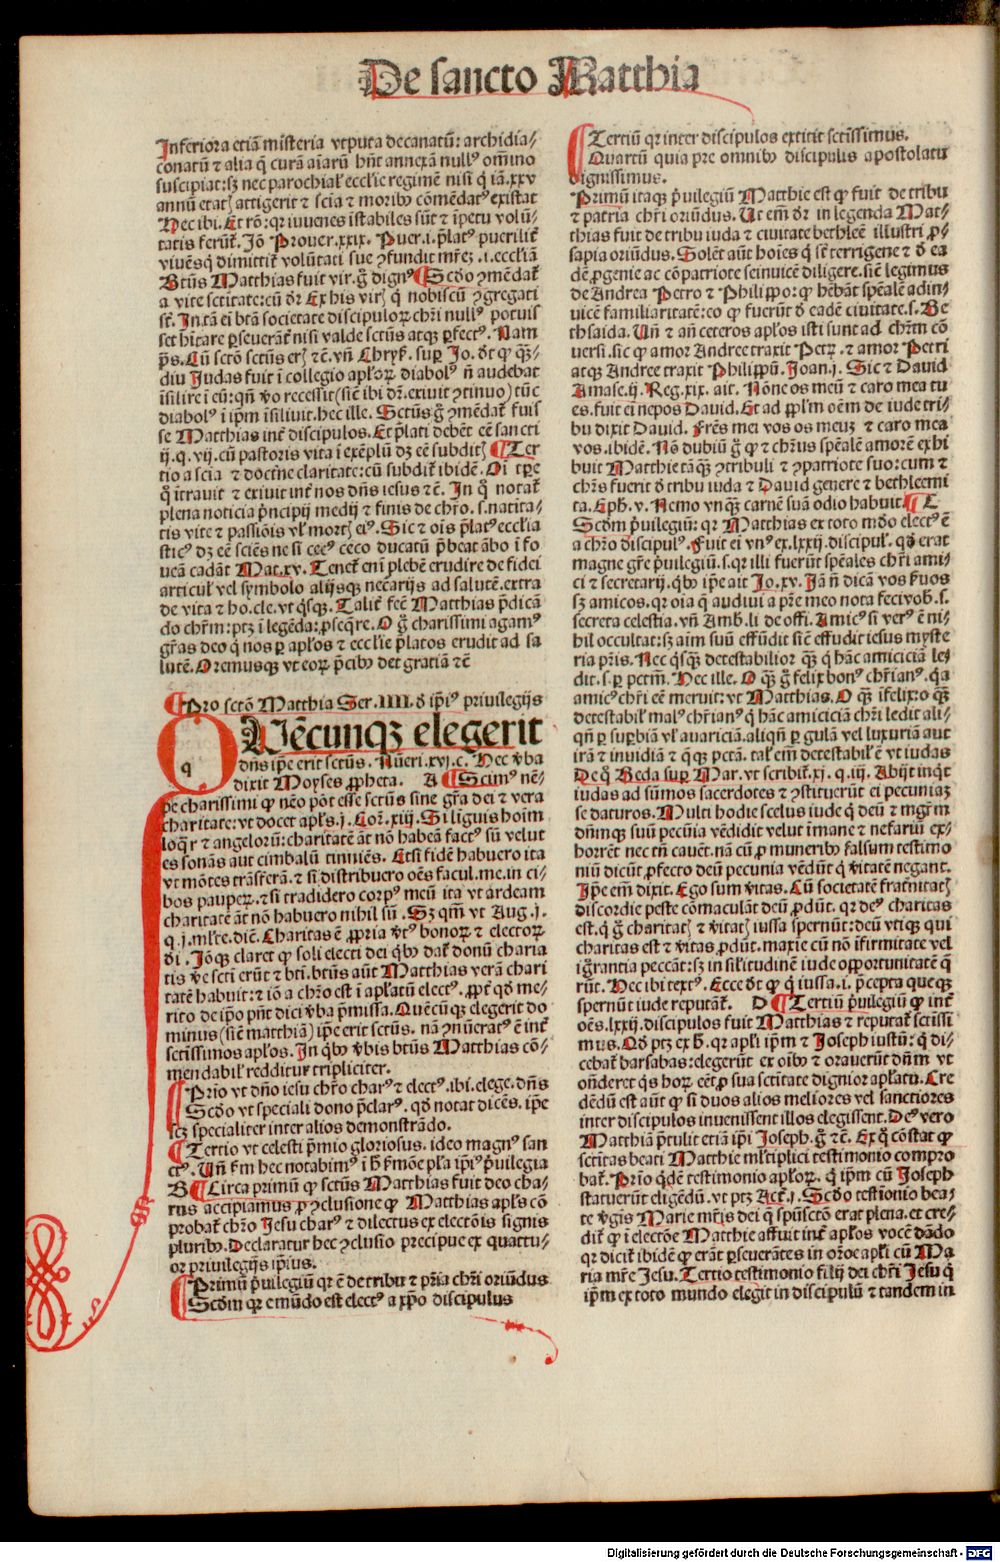 De sancto Matthia
Inferiora etiā mīsteria vtputa decanatū: archidia-
conatū ⁊ alia q̄ curā aīarū hn̄t annexā nullꝰ om̄ino
suscipiat: sꝫ nec parochiał eccl'ie regimē nisi q̄ iā .xxv
annū etatꝭ attigerit ⁊ scīa ⁊ moribꝰ cōmēdatꝰ existat
Hec ibi. Et rō: qr iuuenes īstabiles sūt ⁊ īpetu volū-
tatis ferūt̄. Jō Prouer.xxix. Puer.i. p̄latꝰ puerilit̄
viuēsq̄ dimittit̄ volūtati sue ꝯfundit mr̄eꝫ .i. eccl'iā
Btūs Matthias fuit vir. g̊ dignꝰ ¶ Scd'o ꝯmēdat̄
a vite sctītate: cū dr̄ Ex his virꝭ q̄ nobiscū ꝯgregati
st̄. In tā ei btā societate discipuloꝝ chr̄i nullꝰ potuis
set hītare ꝑseuerāt̄ nisi valde sctūs atqꝫ ꝑfectꝰ. Nam
p̄s. Cū sctō sctūs erꝭ ⁊c̄. vn̄ Chryſ. suꝑ Jo. dt̄ ꝙ qꝫ-
diu Judas fuit ī collegio apl'oꝝ diabolꝰ n̄ audebat
īsilire ī eū: qn̄ v̊o recessit (sic̄ ibi dr̄. exiuit ꝯtinuo) tūc
diabolꝰ ī ip̄m īsiliuit. hec ille. Sctūs g̊ ꝯmēdat̄ fuis
se Matthias int̄ discipulos. Et p̄lati debēt eē sancti
ij.q.vij. cū pastoris vita ī exēplū dꝫ eē subditꝭ ¶ Ter
tio a scīa ⁊ doct'ne claritate: cū subdit̄ ibidē. Oī tꝑe
q̊ ītrauit ⁊ exiuit int̄ nos dn̄s iesus ⁊c̄. In q̊ notat̄
plena noticia p̄ncipij medij ⁊ finis de chr̄o. s. natita-
tis vite ⁊ passiōis vł mortꝭ eiꝰ. Sic ⁊ oīs p̄latꝰ eccl'ia
sticꝰ dꝫ eē sciēs ne si cecꝰ ceco ducatū p̄beat ābo ī fo
ueā cadāt Mat.xv. Tenet̄ eni plebē erudire de fidei
articuł vel symbolo alijsqꝫ nec̄arijs ad salutē. extra
de vita ⁊ ho.cle. vt q̄sqꝫ. Talit̄ fec̄ Matthias p̄dicā
do chr̄m: ptꝫ ī legēda: ꝓseq̄re. O g̊ charissimi agamꝰ
gr̄as deo q̄ nos ꝑ apl'os ⁊ eccl'ie p̄latos erudit ad sa
lutē. Oremusqꝫ vt eoꝝ p̄cibꝰ det gratiā ⁊c̄
¶ Pro sctō Matthia Ser. IIII. d' ip̄iꝰ priuilegijs
QVēcunqꝫ elegerit
q
dn̄s ip̄e erit sctūs. Nūeri.xvj.c. Hec v̄ba
dixit Moyses ꝓpheta. A ¶ Scimꝰ nē-
pe charissimi ꝙ nēo pōt esse sctūs sine gr̄a dei ⁊ vera
charitate: vt docet apl's .j. Cor̄.xiij. Si liguis hoīm
loq̄r ⁊ angelorū: charitatē āt nō habeā factꝰ sū velut
es sonās aut cimbalū tinniēs. Etsi fidē habuero ita
vt mōtes trāsferā. ⁊ si distribuero oēs facul. me. in ci-
bos pauꝑeꝝ. ⁊ si tradidero corpꝰ meū ita vt ardeam
charitatē āt nō habuero nihil sū. Sꝫ qm̄ vt Aug .j.
q.j. ml'te. dic̄. Charitas ē ꝓpria vt̄ꝰ bonoꝝ ⁊ electoꝝ
d'i . Jōqꝫ claret ꝙ soli electi dei q̄bꝰ dat̄ donū charia
tis v̄e scti erūt ⁊ bt̄i. btūs aūt Matthias verā chari
tatē habuit: ⁊ iō a chr̄o est ī apl'atū electꝰ. ꝓpt̄ qd' me-
rito de ip̄o pn̄t dici v̄ba p̄missa. Quēcūqꝫ elegerit do
minus (sic̄ matthiā) ip̄e erit sctūs. nā ꝯnūeratꝰ ē int̄
sctīssimos apl'os. In q̄bꝰ v̄bis btūs Matthias cō-
mendabił redditur tripliciter.
¶ Prīo vt dn̄o iesu chr̄o charꝰ ⁊ electꝰ. ibi. elege. dn̄s
Scd'o vt speciali dono p̄clarꝰ. qd' notat dicēs. ip̄e
scꝫ specialiter inter alios demonstrādo.
¶ Tertio vt celesti p̄mio gloriosus. ideo magnꝰ san
ctꝰ. Vn̄ ẜm hec notabimꝰ ī h̊ ẜmōe pl'a ip̄iꝰ p̄uilegia
B ¶ Circa primū ꝙ sctūs Matthias fuit deo cha-
rus accipiamus ꝓ ꝯclusione ꝙ Matthias apl's cō
probat̄ chr̄o Jesu charꝰ ⁊ dilectus ex electōis signis
pluribꝰ. Declaratur hec ꝯclusio precipue ex quattu-
or priuilegijs ip̄ius.
¶ Primū p̄uilegiū qr ē de tribu ⁊ pr̄ia chr̄i oriūdus
Scd'm qr e mūdo est electꝰ a xp̄o discipulus
¶ Tertiū qr inter discipulos extitit sctīssimus.
Quartū quia pre omnibꝰ discipulis apostolatu
dignissimus.
Primū itaqꝫ p̄uilegiū Matthie est ꝙ fuit de tribu
⁊ patria chr̄i oriūdus. Vt em̄ dr̄ in legenda Mat-
thias fuit de tribu iuda ⁊ ciuitate bethleē illustri ꝓ-
sapia oriūdus. Solēt aūt hoīes q̄ st̄ terrigene ⁊ d' ea
dē ꝓgenie ac cōpatriote seinuicē diligere. sic̄ legimus
de Andrea Petro ⁊ Philippo: ꝙ hēbāt spēalē adin-
uicē familiaritatē: eo ꝙ fuerūt d' eadē ciuitate. s. Be
thsaida. Vn̄ ⁊ an̄ ceteros apl'os isti sunt ad chr̄m cō
uersi. sic ꝙ amor Andree traxit Petꝝ .⁊ amor Petri
atqꝫ Andree traxit Philippū. Joan.j. Sic ⁊ Dauid
Amase.ij.Reg.xix. ait. Nōne os meū ⁊ caro mea tu
es. fuit ei nepos Dauid. Et ad ppl'm oēm de iude tri-
bu dixit Dauid. Fr̄es mei vos os meuꝫ ⁊ caro mea
vos. ibidē. Nō dubiū g̊ ꝙ ⁊ chr̄us spēalē amorē exhi
buit Matthie tāqꝫ ꝯtribuli ⁊ ꝯpatriote suo: cum ⁊
chr̄s fuerit d' tribu iuda ⁊ Dauid genere ⁊ bethleemi
ta. Eph.v. Nemo vnqꝫ carnē suā odio habuit. ¶ C
Scd'm p̄uilegiū: qr Matthias ex toto mūdo electꝰ ē
a chr̄o discipulꝰ. Fuit ei vnꝰ ex .lxxij. discipuł. qd' erat
magne gr̄e p̄uilegiū. s. qr illi fuerūt spēales chr̄i ami-
ci ⁊ secretarij. q̄bꝰ ip̄e ait Jo.xv. Jā n̄ dicā vos ẜuos
sꝫ amicos. qr oīa q̄ audiui a pr̄e meo nota feci vob̄. s.
secreta celestia. vn̄ Amb.li. de offi. Amicꝰ si verꝰ ē ni-
hil occultat: sꝫ aīm suū effūdit sic̄ effudit iesus myste
ria pr̄is. Nec q̄sqꝫ detestabilior qꝫ q̄ hāc amiciciā le-
dit. s. ꝑ pctm̄. Hec ille. O qꝫ g̊ felix bonꝰ chr̄ianꝰ. q̄a
amicꝰ chr̄i eē meruit: vt Matthias. O qꝫ īfelix: o qꝫ
detestabił malꝰ chr̄ianꝰ q̄ hāc amiciciā chr̄i ledit ali-
qn̄ ꝑ suꝑbiā vł auariciā. aliqn̄ ꝑ gulā vel luxuriā aut
irā ⁊ inuidiā ⁊ q̄qꝫ pctā. tał em̄ detestabił ē vt iudas
De q̊ Beda suꝑ Mar. vt scribit̄.xj.q.iij. Abijt inq̄t
iudas ad sūmos sacerdotes ⁊ ꝯstituerūt ei pecuniaꝫ
se daturos. Multi hodie scelus iude q̄ deū ⁊ mgr̄m
dn̄mqꝫ suū pecūia vēdidit velut īmane ⁊ nefariū ex-
horrēt nec tn̄ cauēt. nā cū ꝓ muneribꝰ falsum testimo
niū dicūt ꝓfecto deū pecunia vēdūt q̄ v̄itatē negant.
Ip̄e em̄ dixit. Ego sum v̄itas. Cū societatē frat̄nitatꝭ
discordie peste cōmaculāt deū ꝓdūt. qr deꝰ charitas
est. q̄ g̊ charitatꝭ ⁊ v̄itatꝭ iussa spernūt: deū vtiqꝫ qui
charitas est ⁊ v̄itas ꝓdūt. maxīe cū nō īfirmitate vel
ig̊rantia peccāt: sꝫ in sil'itudinē iude opportunitatē q̄
rūt. Hec ibi textꝰ. Ecce dt̄ ꝙ q̄ iussa .i. p̄cepta queqꝫ
spernūt iude reputāt̄. D ¶ Tertiū p̄uilegiū ꝙ int̄
oēs .lxxij. discipulos fuit Matthias ⁊ reputat̄ sctīssi
mus. Qd' ptꝫ ex h̊. qr apl'i ip̄m ⁊ Joseph iustū: q̄ di-
cebat̄ barsabas: elegerūt ex oībꝰ ⁊ orauerūt dn̄m vt
on̄deret q̄s hoꝝ eēt ꝓ sua sctītate dignior apl'atu. Cre
dēdū est aūt ꝙ si duos alios meliores vel sanctiores
inter discipulos inuenissent illos elegissent. Deꝰ vero
Matthiā p̄tulit etiā ip̄i Joseph. g̊ ⁊c̄. Ex q̊ cōstat ꝙ
sctītas beati Matthie ml'tiplici testimonio compro
bat̄. Prīo q̄dē testimonio apl'oꝝ. q̄ ip̄m cū Joseph
statuerūt eligēdū. vt ptꝫ Act̄.j. Scd'o testīonio bea-
te v̄gis Marie mr̄is dei q̄ sp̄usctō erat plena. et cre-
dit̄ ꝙ ī electōe Matthie affuit int̄ apl'os vocē dādo
qr dicit̄ ibidē ꝙ erāt ꝑseuerātes in or̄oe apl'i cū Ma
ria mr̄e Jesu. Tertio testimonio filij dei chr̄i Jesu q̄
ip̄m ex toto mundo elegit in discipulū ⁊ tandem in
Digitalisierung gefördert durch die Deutsche Forschungsgemeinschaft - DFG